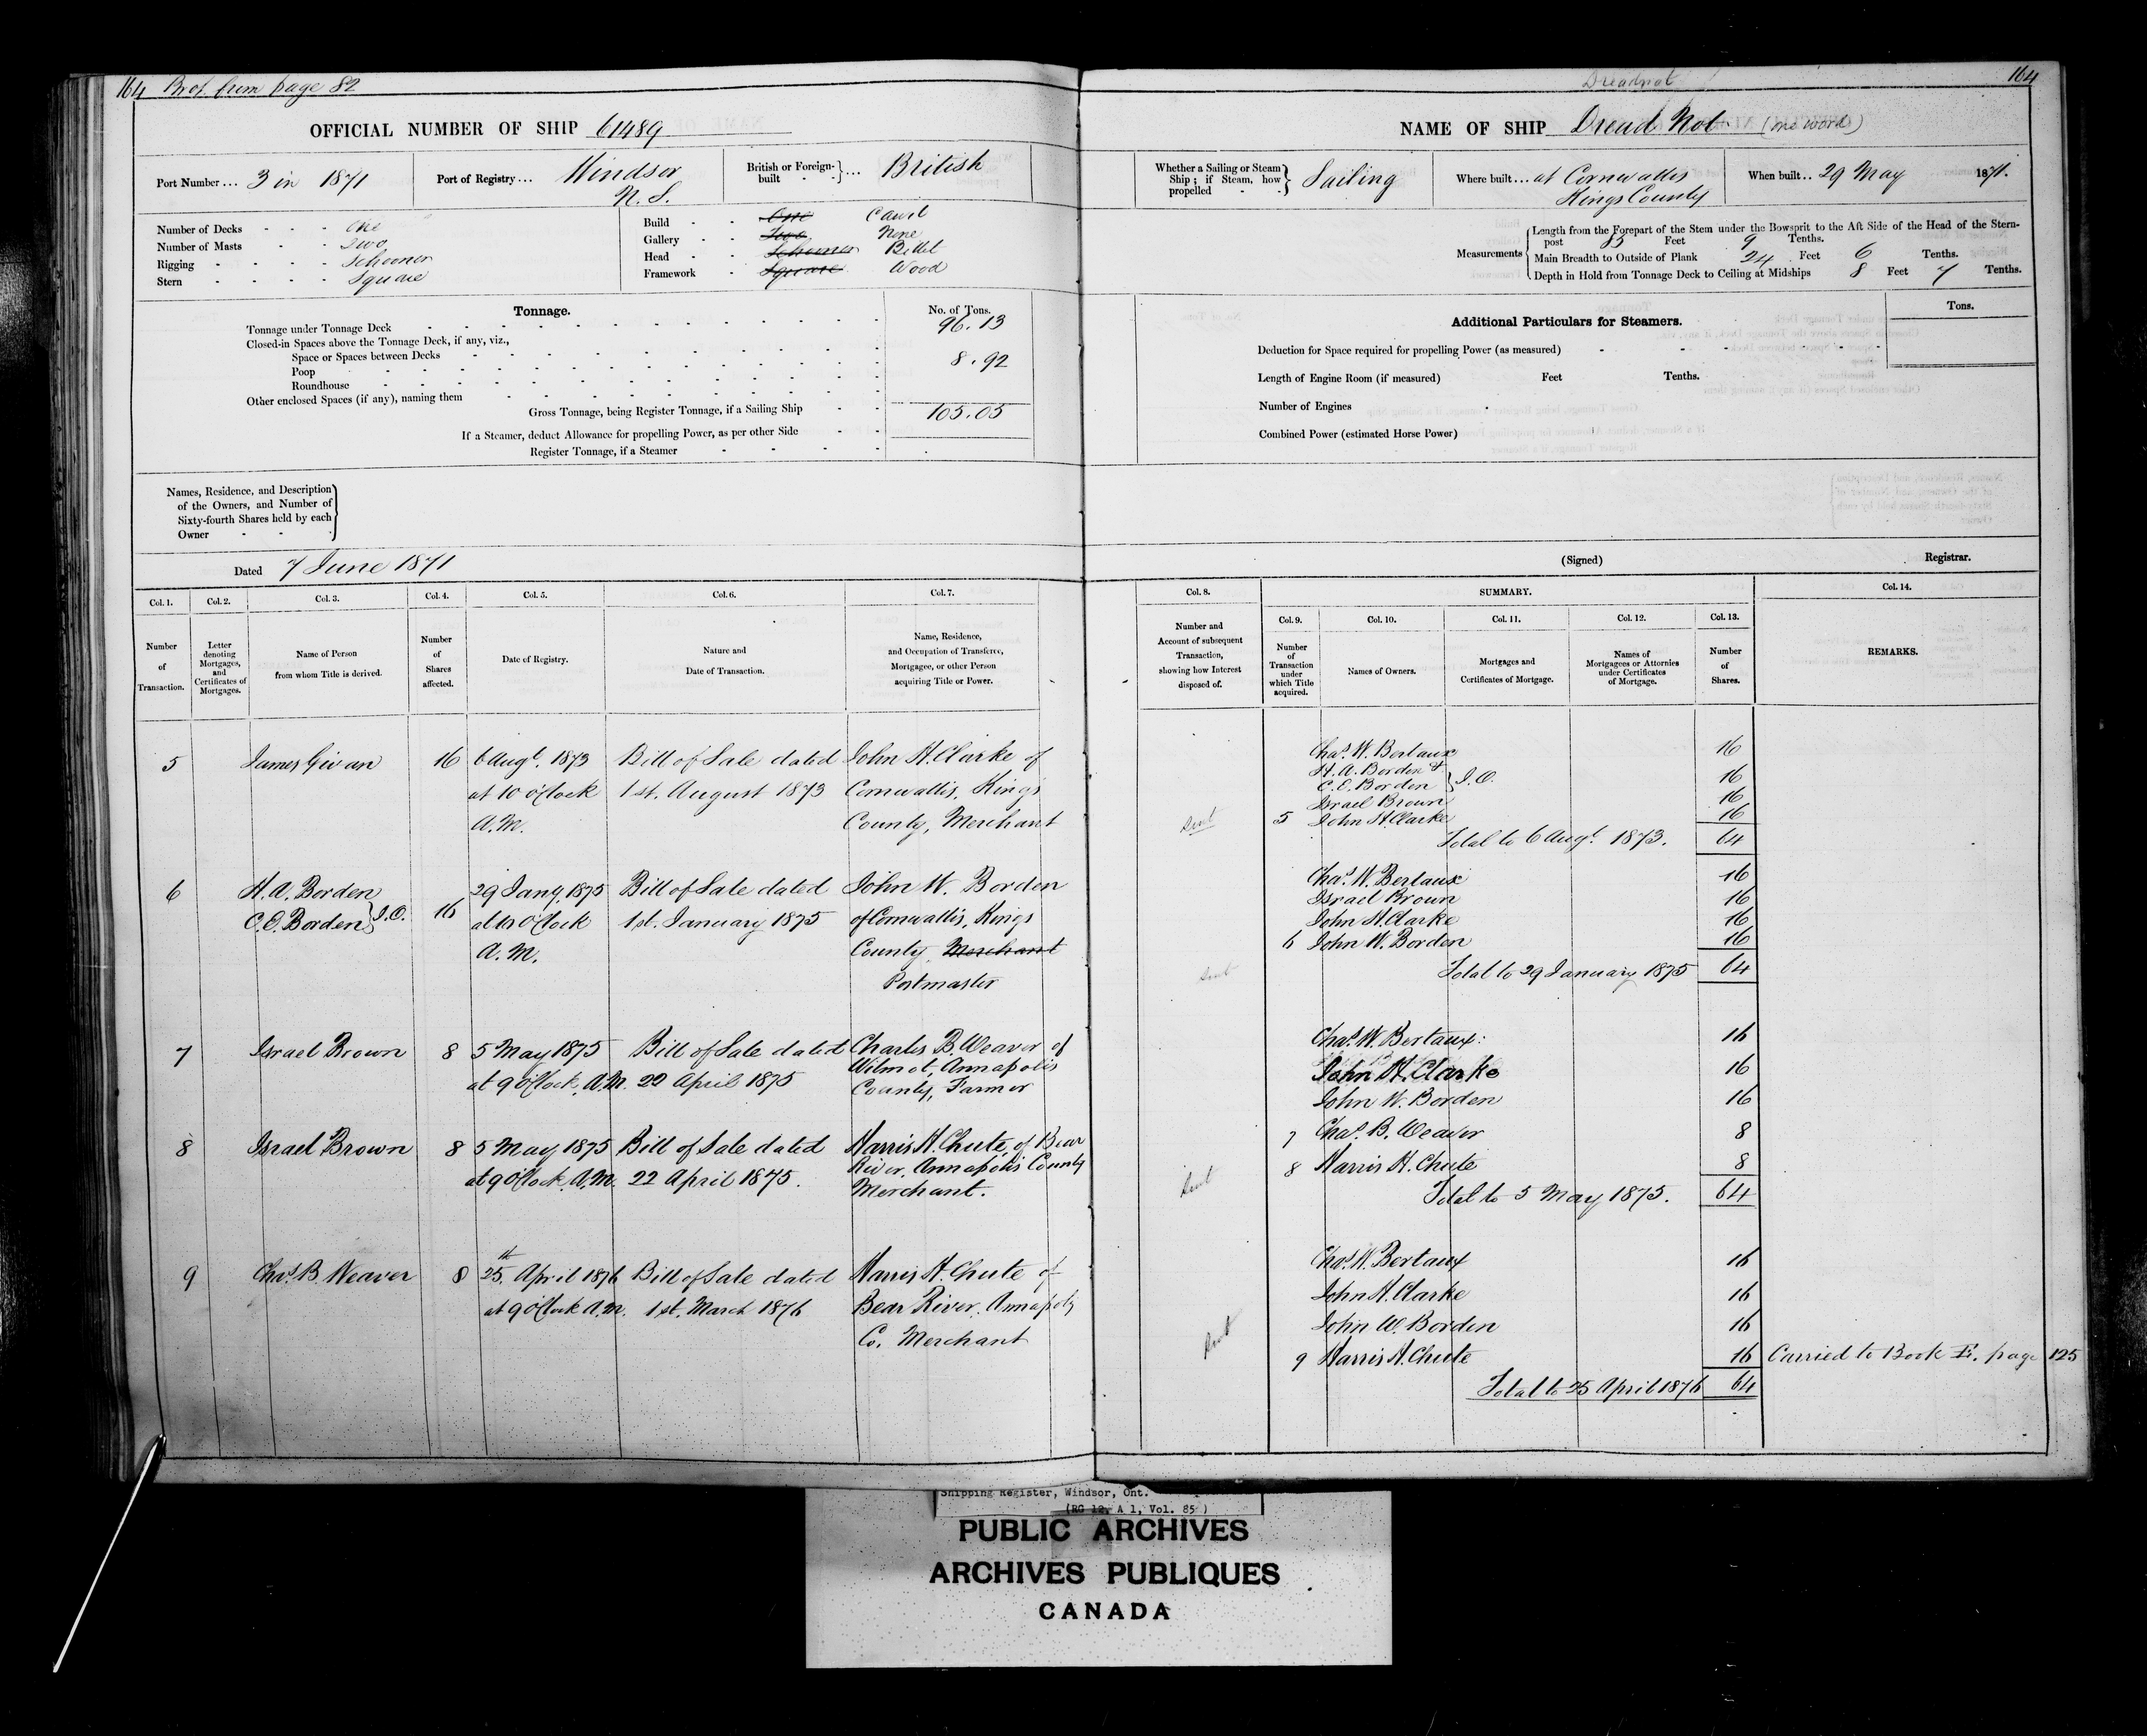 164 Brot from page 82
OFFICIAL NUMBER OF SHIP 61489
Port Number ... 3 in 1871
Port of Registry ... Windsor
N. S.
British or Foreign-built ... British
Number of Decks One
Number of Masts Two
Rigging Schooner
Stern Square
Build One Carvel
Gallery Two None
Head Schooner Billet
Framework Square Wood
Tonnage.
No. of Tons.
Tonnage under Tonnage Deck 96.13
Closed-in Spaces above the Tonnage Deck, if any, viz.,
Space or Spaces between Decks 8.92
Poop
Roundhouse
Other enclosed Spaces (if any), naming them
Gross Tonnage, being Register Tonnage, if a Sailing Ship 105.05
If a Steamer, deduct Allowance for propelling Power, as per other Side
Register Tonnage, if a Steamer
Names, Residence, and Description
of the Owners, and Number of
Sixty-fourth Shares held by each
Owner
Dated 7 June 1871
Col. 1. Col. 2. Col. 3. Col. 4. Col. 5. Col. 6. Col. 7.
Number of Transaction.
Letter denoting Mortgages, and Certificates of Mortgages.
Name of Person from whom Title is derived.
Number of Shares affected.
Date of Registry.
Nature and Date of Transaction.
Name, Residence, and Occupation of Transferee, Mortgagee, or other Person acquiring Title or Power.
5 James Givan 16 6 Augt. 1873 Bill of Sale dated John H. Clarke of
at 10 o'Clock 1st. August 1873 Cornwallis, Kings
A.M. County, Merchant
6 H. A. Borden 29 Jany. 1875 Bill of Sale dated John W. Borden
C. E. Borden } J.O. 16 at 10 o'Clock 1st. January 1875 of Cornwallis, Kings
A. M. County Merchant
Postmaster
7 Israel Brown 8 5 May 1875 Bill of Sale dated Charles B. Weaver of
Wilmot, Annapolis
at 9 o'Clock A.M. 22 April 1875 County, Farmer
8 Israel Brown 8 5 May 1875 Bill of Sale dated Harris H. Chute, of Bear
River, Annapolis County
at 9 o'Clock A.M. 22 April 1875. Merchant.
9 Chas. B Weaver 8 25th. April 1876 Bill of Sale dated Harris H. Chute of
at 9 o'Clock A.M. 1st. March 1876 Bear River, Annapolis
Co. Merchant
Dreadnot
164
NAME OF SHIP Dread Not (one word)
Whether a Sailing or Steam Ship; if Steam, how propelled Sailing
Where built ... at Cornwallis
Kings County
When built .. 29 May 1871.
Measurements
Length from the Forepart of the Stem under the Bowsprit to the Aft Side of the Head of the Stern-
post 83 Feet 9 Tenths.
Main Breadth to Outside of Plank 24 Feet 6 Tenths.
Depth in Hold from Tonnage Deck to Ceiling at Midships 8 Feet 7 Tenths.
Additional Particulars for Steamers.
Tons.
Deduction for Space required for propelling Power (as measured)
Length of Engine Room (if measured) Feet Tenths.
Number of Engines
Combined Power (estimated Horse Power)
(Signed) Registrar.
Col. 8. SUMMARY. Col. 14.
Col. 9. Col. 10. Col. 11. Col. 12. Col. 13.
Number and Account of subsequent Transaction, showing how Interest disposed of.
Number of Transaction under which Title acquired.
Names of Owners.
Mortgages and Certificates of Mortgage.
Names of Mortgagees or Attornies under Certificates of Mortgage.
Number of Shares.
REMARKS.
Chas. W. Bertaux 16
H. A. Borden &
C. E. Borden } J.O. 16
Israel Brown 16
Sent 5 John H. Clarke 16
Total to 6 Augt. 1873. 64
Chas. W. Bertaux 16
Israel Brown 16
John H. Clarke 16
6 John W. Borden 16
Sent Total to 29 January 1875 64
Chas. W. Bertaux: 16
John H. Clarke 16
John W. Borden 16
7 Chas. B. Weaver 8
8 Harris H. Chute 8
Sent Total to 5 May 1875. 64
Chas. W. Bertaux 16
John H. Clarke 16
John W. Borden 16
Sent 9 Harris H. Chute 16 Carried to Book E. page 125
Total to 25 April 1876 64
Shipping Register, Windsor, Ont.
(RG 12, A 1, Vol. 85)
PUBLIC ARCHIVES
ARCHIVES PUBLIQUES
CANADA